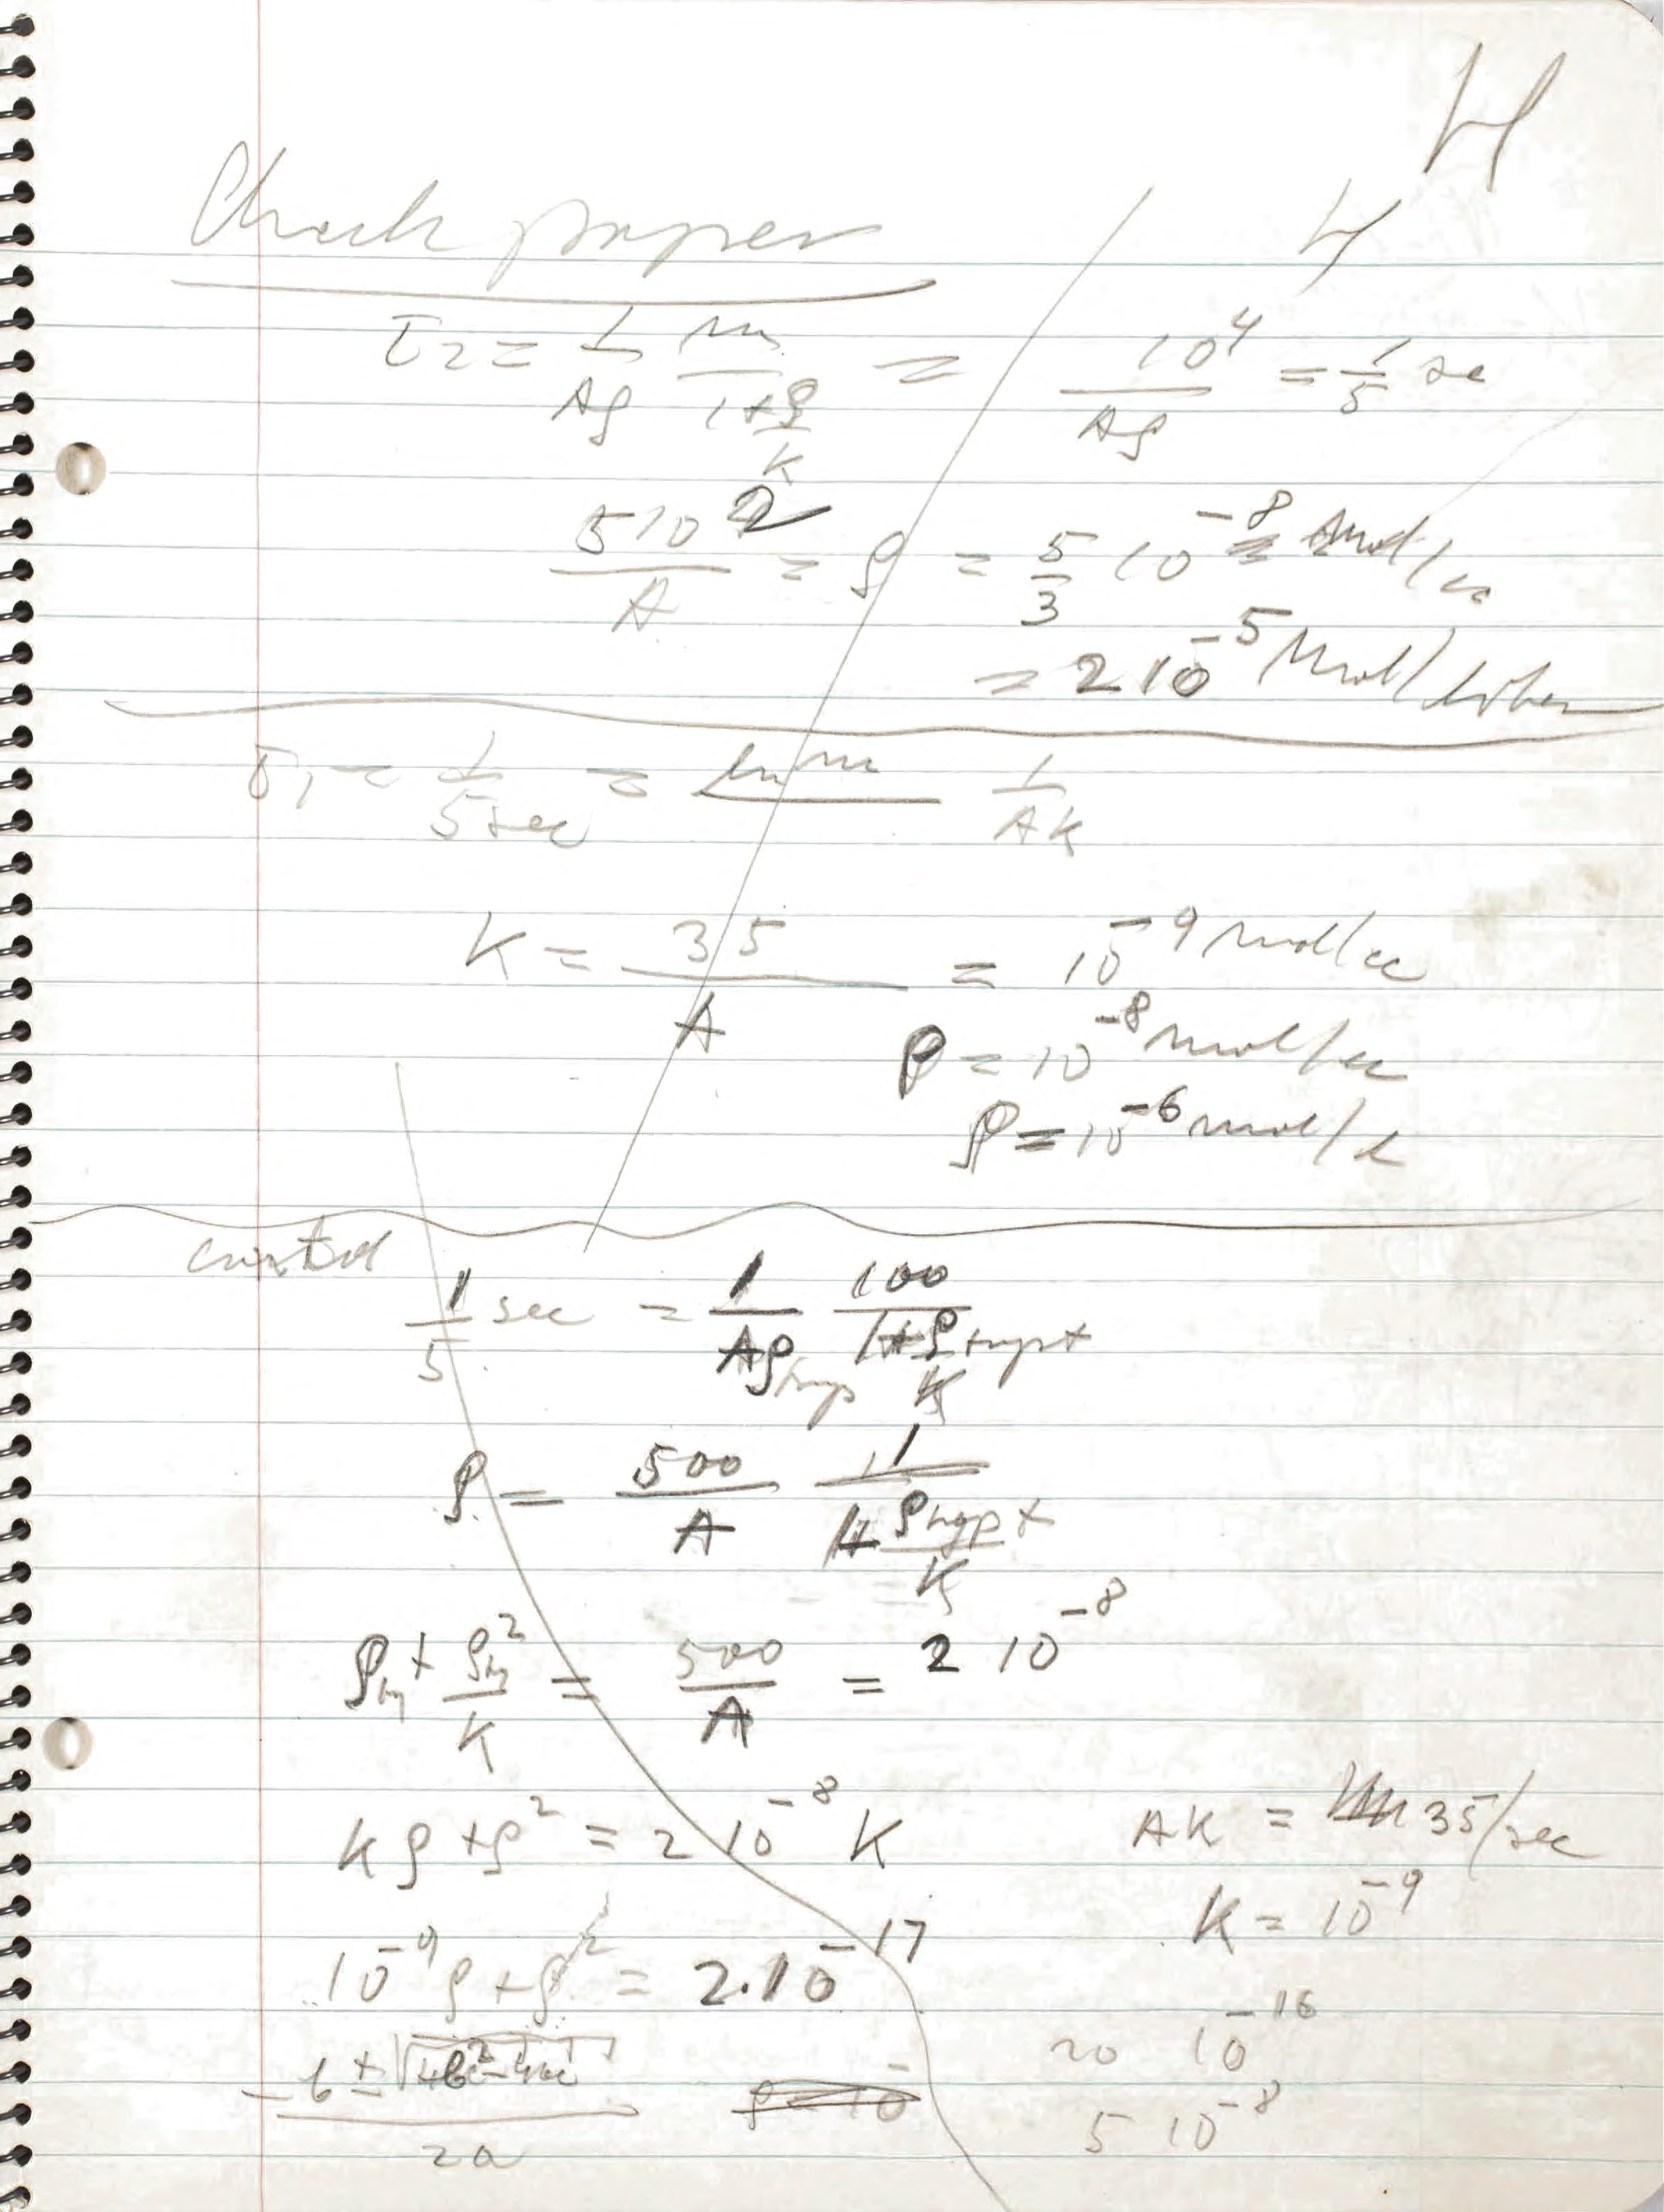 H
4
Check paper
τ₂ = 1/Aρ m/(1+ρ/K) = 10⁴/Aρ = 1/5 sec
5 10²/A = ρ = 5/3 10⁻⁸ mol/cc
= 2 10⁻⁵ Mol/liter
τ₁ = 1/5 sec = ln m 1/AK
K = 35/A = 10⁻⁹ mol/cc
ρ = 10⁻⁸ mol/cc
ρ = 10⁻⁶ mol/l
1/5 sec = 1/Aρ 100/(1+ρ/K)
ρ = 500/A 1/(1+ρ/K)
ρ + ρ²/K = 500/A = 2 10⁻⁸
Kρ + ρ² = 2 10⁻⁸ K
AK = 35/sec
K = 10⁻⁹
10⁻⁹ρ + ρ² = 2.10⁻¹⁷
20 10⁻¹⁶
-b ± √b²-4ac / 2a
5 10⁻⁸